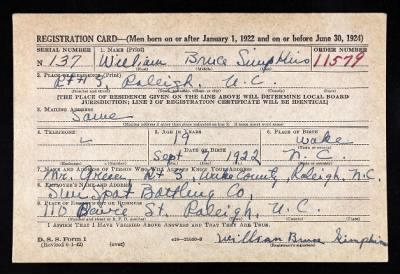 REGISTRATION CARD—(Men born on or after January 1, 1922 and on or before June 30, 1924)
SERIAL NUMBER 1. NAME (Print) ORDER NUMBER
N 137 William Bruce Simpkins 11579
(First) (Middle) (Last)
2. PLACE OF RESIDENCE (Print)
Rt # 3 Raleigh, N.C.
[THE PLACE OF RESIDENCE GIVEN ON THE LINE ABOVE WILL DETERMINE LOCAL BOARD
JURISDICTION; LINE 2 OF REGISTRATION CERTIFICATE WILL BE IDENTICAL]
3. MAILING ADDRESS
Same
4. TELEPHONE 5. AGE IN YEARS 6. PLACE OF BIRTH
19 Wake
DATE OF BIRTH
Sept 1922 N.C.
7. NAME AND ADDRESS OF PERSON WHO WILL ALWAYS KNOW YOUR ADDRESS
Mr. Green Rt # 3, Wake County, Raleigh, N.C.
8. EMPLOYER'S NAME AND ADDRESS
Sun Spot Bottling Co,
9. PLACE OF EMPLOYMENT OR BUSINESS
110 St. Raleigh, N.C.
I AFFIRM THAT I HAVE VERIFIED ABOVE ANSWERS AND THAT THEY ARE TRUE.
D. S. S. Form 1
(over) William Bruce Simpkins